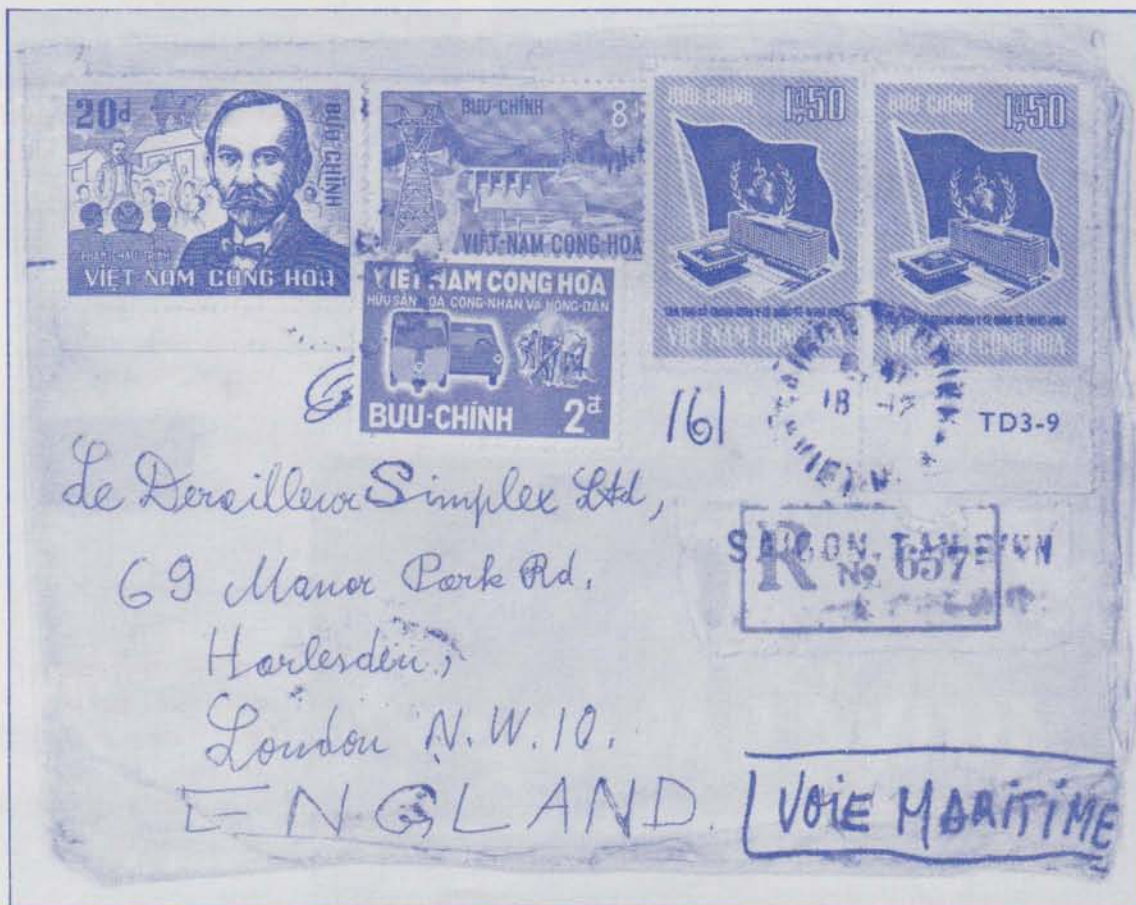 20đ
BƯU CHÍNH
VIỆT NAM CỘNG HÒA
BƯU-CHÍNH
8đ
VIỆT-NAM CỘNG-HÒA
BƯU-CHÍNH
1đ,50
VIỆT NAM CỘNG HÒA
BƯU-CHÍNH
1đ,50
VIỆT NAM CỘNG HÒA
VIỆT NAM CỘNG HÒA
HỮU SẢN HOÁ CÔNG-NHÂN VÀ NÔNG-DÂN
BƯU-CHÍNH 2đ
161
18 -12
TD3-9
Le Derailleur Simplex Ltd,
69 Manor Park Rd.
Harlesden,
London N.W.10.
ENGLAND.
R No 657
VOIE MARITIME